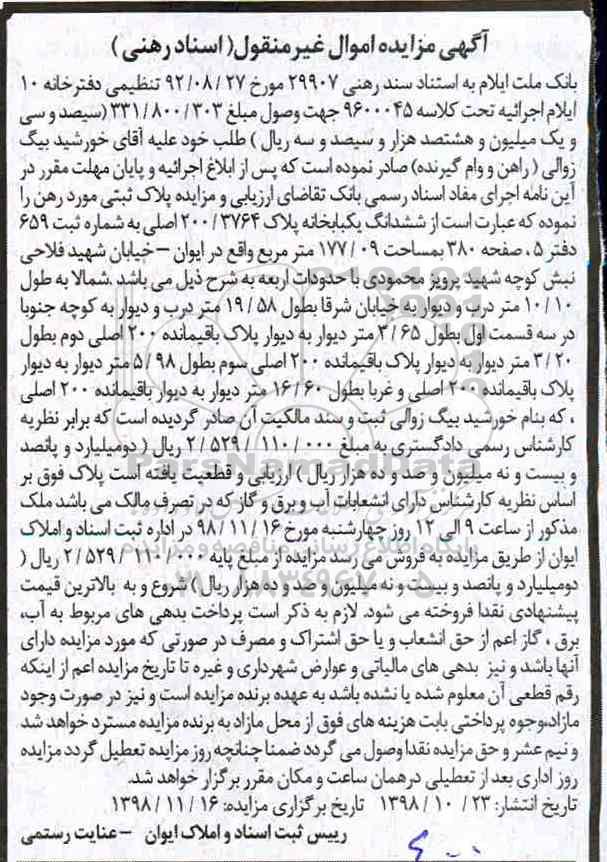 آگهی مزایده اموال غیر منقول( اسناد رهنی )
بانک ملت ایلام به استناد سند رهنی ۲۹۹۰۷ مورخ ۲۷ / ۰۸ / ۹۲ تنظیمی دفترخانه ۱۰
ایلام اجرائیه تحت کلاسه ۹۶۰۰۰۴۵ جهت وصول مبلغ ۳۰۳ / ۸۰۰ / ۳۳۱ (سیصد و سی
و یک میلیون و هشتصد هزار و سیصد و سه ریال ) طلب خود علیه آقای خورشید بیگ
زوالی ( راهن و وام گیرنده) صادر نموده است که پس از ابلاغ اجرائیه و پایان مهلت مقرر در
آین نامه اجرای مفاد اسناد رسمی بانک تقاضای ارزیابی و مزایده پلاک ثبتی مورد رهن را
نموده که عبارت است از ششدانگ یکبابخانه پلاک ۳۷۶۴ / ۲۰۰ اصلی به شماره ثبت ۶۵۹
دفتر ۵ ، صفحه ۳۸۰ بمساحت ۰۹ / ۱۷۷ متر مربع واقع در ایوان – خیابان شهید فلاحی
نبش کوچه شهید پرویز محمودی با حدودات اربعه به شرح ذیل می باشد .شمالا به طول
۱۰ / ۱۰ متر درب و دیوار به خیابان شرقا بطول ۵۸ / ۱۹ متر درب و دیوار به کوچه جنوبا
در سه قسمت اول بطول ۶۵ / ۲ متر دیوار به دیوار پلاک باقیمانده ۲۰۰ اصلی دوم بطول
۲۰ / ۳ متر دیوار به دیوار پلاک باقیمانده ۲۰۰ اصلی سوم بطول ۹۸ / ۵ متر دیوار به دیوار
پلاک باقیمانده ۲۰۰ اصلی و غربا بطول ۶۰ / ۱۶ متر دیوار به دیوار باقیمانده ۲۰۰ اصلی
، که بنام خورشید بیگ زوالی ثبت و سند مالکیت آن صادر گردیده است که برابر نظریه
کارشناس رسمی دادگستری به مبلغ ۰۰۰ / ۱۱۰ / ۵۲۹ / ۲ ریال ( دومیلیارد و پانصد
و بیست و نه میلیون و صد و ده هزار ریال ) ارزیابی و قطعیت یافته است پلاک فوق بر
اساس نظریه کارشناس دارای انشعابات آب و برق و گاز که در تصرف مالک می باشد ملک
مذکور از ساعت ۹ الی ۱۲ روز چهارشنبه مورخ ۱۶ / ۱۱ / ۹۸ در اداره ثبت اسناد و املاک
ایوان از طریق مزایده به فروش می رسد مزایده از مبلغ پایه ۰۰۰ / ۱۱۰ / ۵۲۹ / ۲ ریال (
دومیلیارد و پانصد و بیست و نه میلیون و صد و ده هزار ریال) شروع و به بالاترین قیمت
پیشنهادی نقدا فروخته می شود. لازم به ذکر است پرداخت بدهی های مربوط به آب،
برق ، گاز اعم از حق انشعاب و یا حق اشتراک و مصرف در صورتی که مورد مزایده دارای
آنها باشد و نیز بدهی های مالیاتی و عوارض شهرداری و غیره تا تاریخ مزایده اعم از اینکه
رقم قطعی آن معلوم شده یا نشده باشد به عهده برنده مزایده است و نیز در صورت وجود
مازاد،وجوه پرداختی بابت هزینه های فوق از محل مازاد به برنده مزایده مسترد خواهد شد
و نیم عشر و حق مزایده نقدا وصول می گردد ضمنا چنانچه روز مزایده تعطیل گردد مزایده
روز اداری بعد از تعطیلی در همان ساعت و مکان مقرر برگزار خواهد شد.
تاریخ انتشار: ۲۳ / ۱۰ / ۱۳۹۸ تاریخ برگزاری مزایده: ۱۶ / ۱۱ / ۱۳۹۸
رییس ثبت اسناد و املاک ایوان – عنایت رستمی
ParsNamadData
پایگاه اطلاع رسانی مناقصه و مزایده